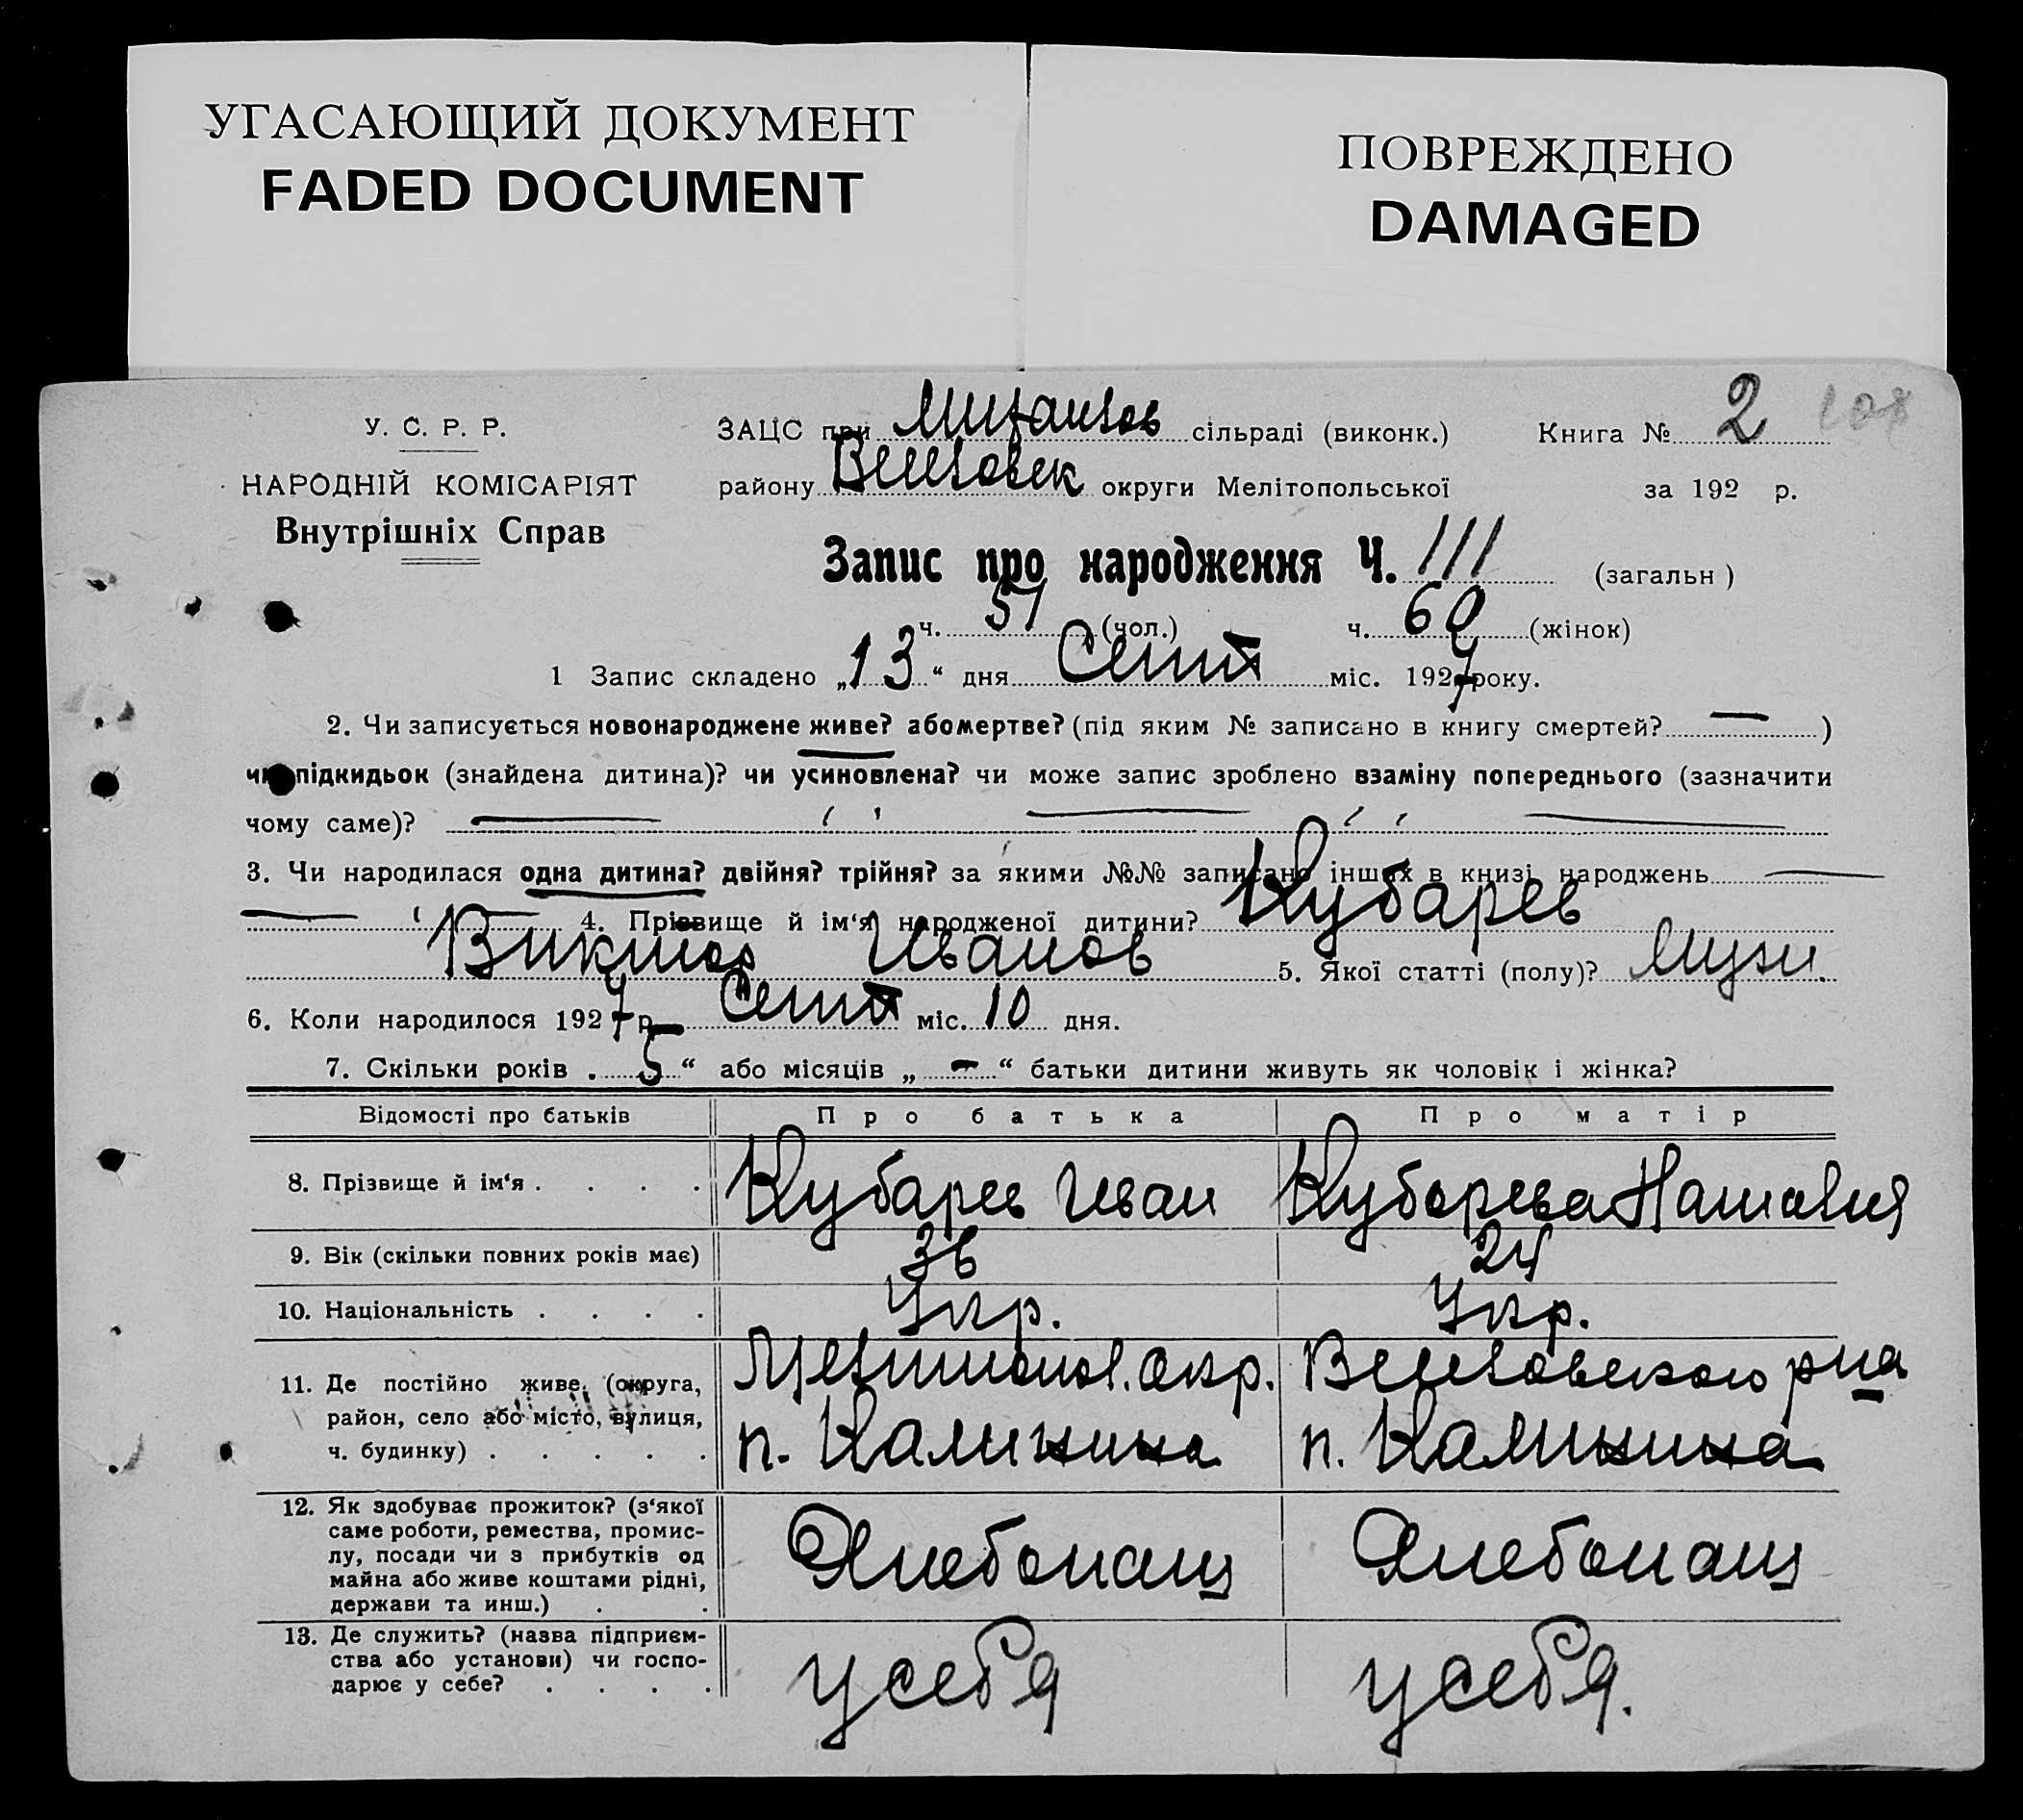 УГАСАЮЩИЙ ДОКУМЕНТ
FADED DOCUMENT
ПОВРЕЖДЕНО
DAMAGED
У. С. Р. Р.
НАРОДНІЙ КОМІСАРІЯТ
Внутрішніх Справ
ЗАЦС при сільраді (виконк.) Книга № 2 108
району округи Мелітопольської за 192 р.
Запис про народження Ч. 111 (загальн )
ч. 51 (чол.) ч. 60 (жінок)
1 Запис складено „13“ дня Сент міс. 1927 року.
2. Чи записується новонароджене живе? абомертве? (під яким № записано в книгу смертей? — )
чи підкидьок (знайдена дитина)? чи усиновлена? чи може запис зроблено взаміну попереднього (зазначити
чому саме)? — " — " —
3. Чи народилася одна дитина? двійня? трійня? за якими №№ записано інших в книзі народжень —
— 4. Прізвище й ім‘я народженої дитини? Кубарев
Виктор Иванов 5. Якої статті (полу)? Мужи.
6. Коли народилося 1927 р. Сент міс. 10 дня.
7. Скільки років „ 5 “ або місяців „ - “ батьки дитини живуть як чоловік і жінка?
Відомості про батьків Про батька Про матір
8. Прізвище й ім‘я . . . . Кубарев Иван Кубарева Наталия
9. Вік (скільки повних років має) 36 24
10. Національність . . . . Укр. Укр.
11. Де постійно живе (округа, район, село або місто, вулиця, ч. будинку) . . . . .
Мелитопол. окр.
п. Калинина
рна
п. Калинина
12. Як здобуває прожиток? (з‘якої
саме роботи, ремества, промис-
лу, посади чи з прибутків од
майна або живе коштами рідні,
держави та инш.) . .
Хлебопаш Хлебопаш
13. Де служить? (назва підприєм-
ства або установи) чи госпо-
дарює у себе? . . . .
у себя у себя.